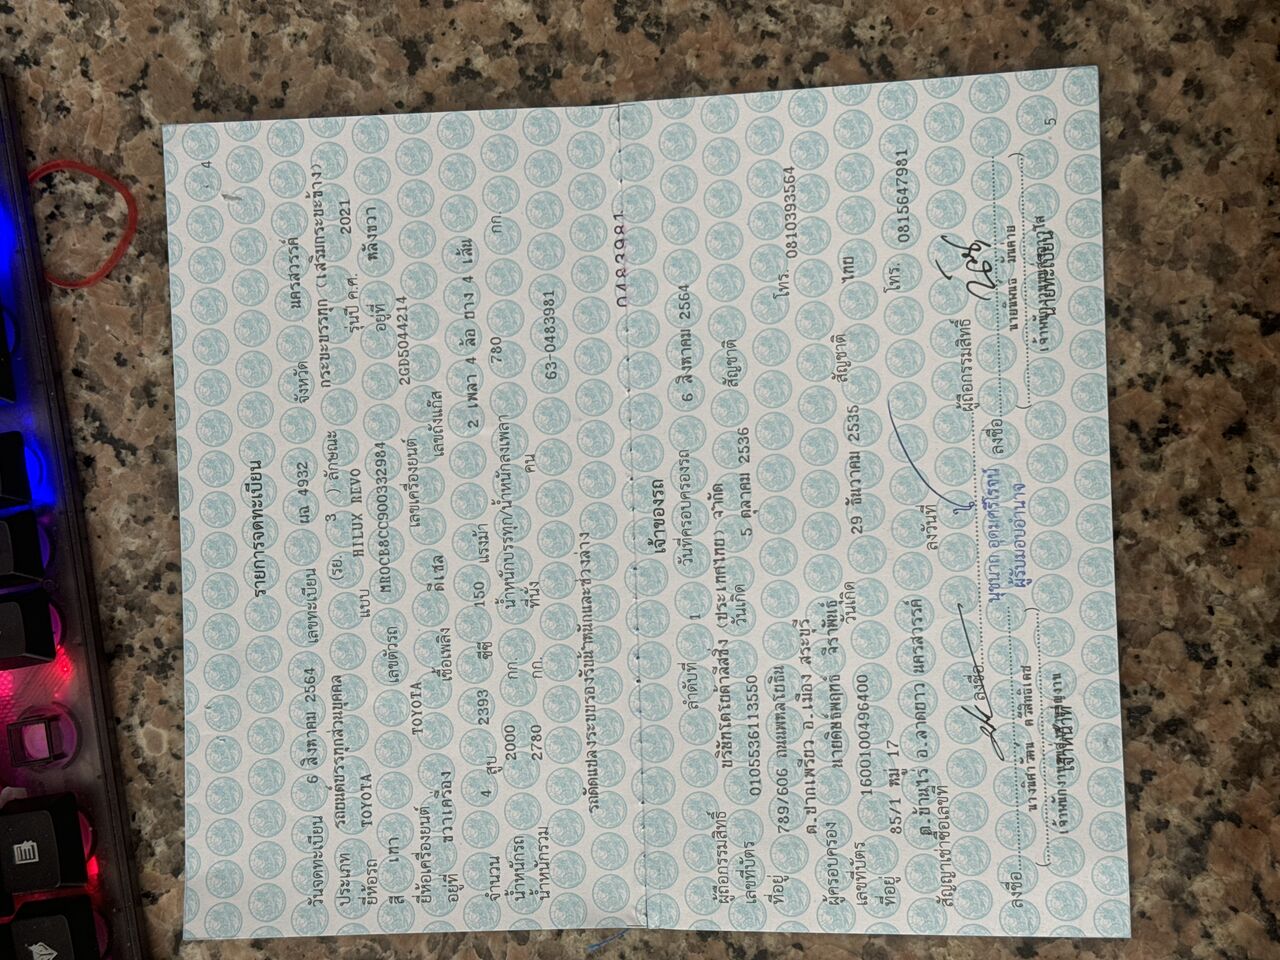 4
รายการจดทะเบียน
วันจดทะเบียน 6 สิงหาคม 2564 เลขทะเบียน ผฉ 4932 จังหวัด นครสวรรค์
ประเภท รถยนต์บรรทุกส่วนบุคคล (รย. 3 ) ลักษณะ กระบะบรรทุก (เสริมกระบะข้าง)
ยี่ห้อรถ TOYOTA แบบ HILUX REVO รุ่นปี ค.ศ. 2021
สี เทา เลขตัวรถ MR0CB8CC900332984 อยู่ที่ หลังขวา
ยี่ห้อเครื่องยนต์ TOYOTA เลขเครื่องยนต์ 2GD5044214
อยู่ที่ ขวาเครื่อง เชื้อเพลิง ดีเซล เลขถังแก๊ส
จำนวน 4 สูบ 2393 ซีซี 150 แรงม้า 2 เพลา 4 ล้อ ยาง 4 เส้น
น้ำหนักรถ 2000 กก. น้ำหนักบรรทุก/น้ำหนักลงเพลา 780 กก.
น้ำหนักรวม 2780 กก. ที่นั่ง คน 63-0483981
รถดัดแปลงระบบรองรับน้ำหนักและช่วงล่าง
0483981
เจ้าของรถ
ลำดับที่ 1 วันที่ครอบครองรถ 6 สิงหาคม 2564
ผู้ถือกรรมสิทธิ์ บริษัทโตโยต้าลีสซิ่ง (ประเทศไทย) จำกัด
เลขที่บัตร 0105536113550 วันเกิด 5 ตุลาคม 2536 สัญชาติ
ที่อยู่ 789/606 ถนนพหลโยธิน
ต.ปากเพรียว อ.เมือง สระบุรี โทร. 0810393564
ผู้ครอบครอง นายดิษย์พฤทธิ์ จิราพันธุ์
เลขที่บัตร 1600100496400 วันเกิด 29 ธันวาคม 2535 สัญชาติ ไทย
ที่อยู่ 85/1 หมู่ 17
ต.บ้านไร่ อ.ลาดยาว นครสวรรค์ โทร. 0815647981
สัญญาเช่าซื้อเลขที่ ลงวันที่
ลงชื่อ ผู้ถือกรรมสิทธิ์
นุชนาถ อุดมศรีโรจน์
ผู้รับมอบอำนาจ
ลงชื่อ
เจ้าหน้าที่
ลงชื่อ
นายทะเบียน
5